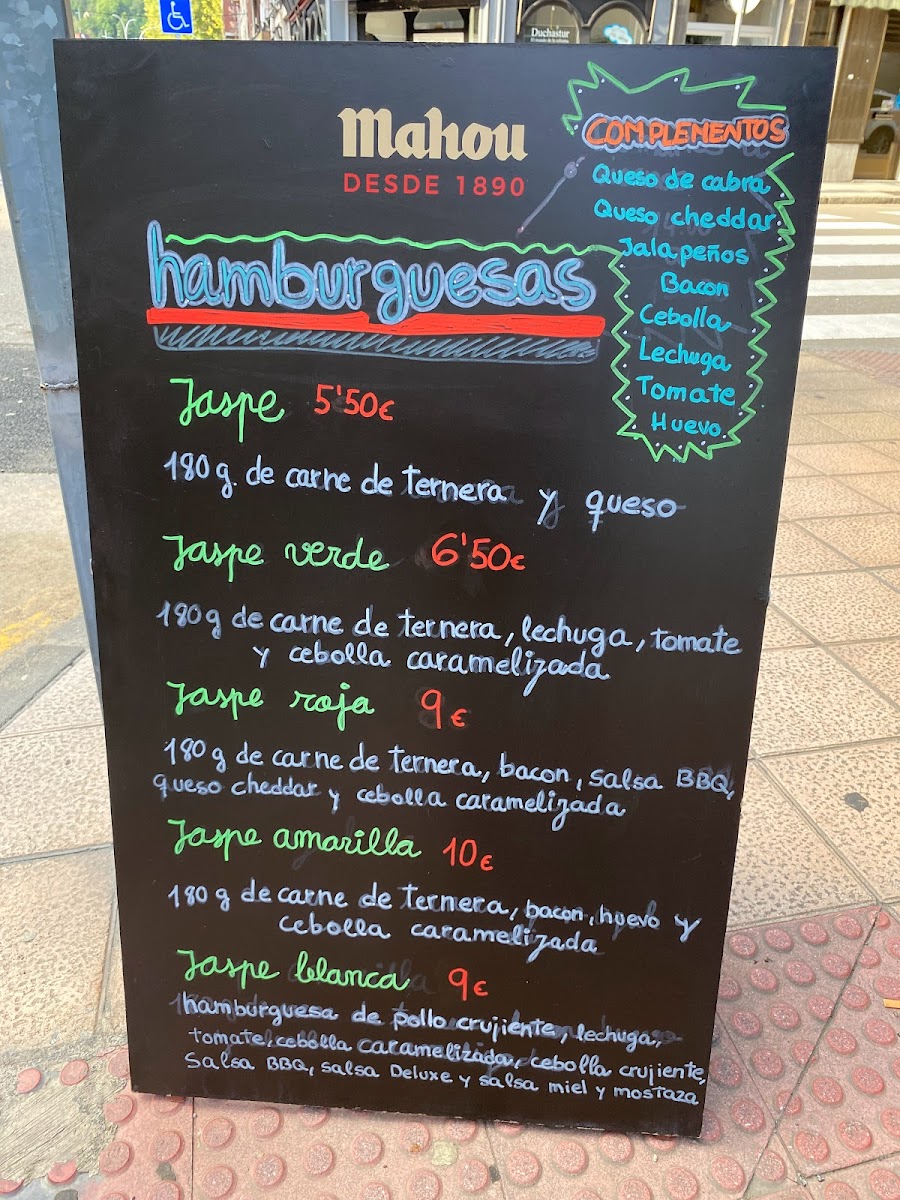 Duchastur
Mahou
DESDE 1890
COMPLEMENTOS
Queso de cabra
Queso cheddar
Jalapeños
Bacon
Cebolla
Lechuga
Tomate
Huevo
hamburguesas
Jaspe 5'50€
180 g. de carne de ternera y queso
Jaspe verde 6'50€
180 g de carne de ternera, lechuga, tomate
y cebolla caramelizada
Jaspe roja 9€
180 g de carne de ternera, bacon, salsa BBQ,
queso cheddar y cebolla caramelizada
Jaspe amarilla 10€
180 g de carne de ternera, bacon, huevo y
cebolla caramelizada
Jaspe blanca 9€
hamburguesa de pollo crujiente, lechuga,
tomate, cebolla caramelizada, cebolla crujiente,
Salsa BBQ, salsa Deluxe y salsa miel y mostaza